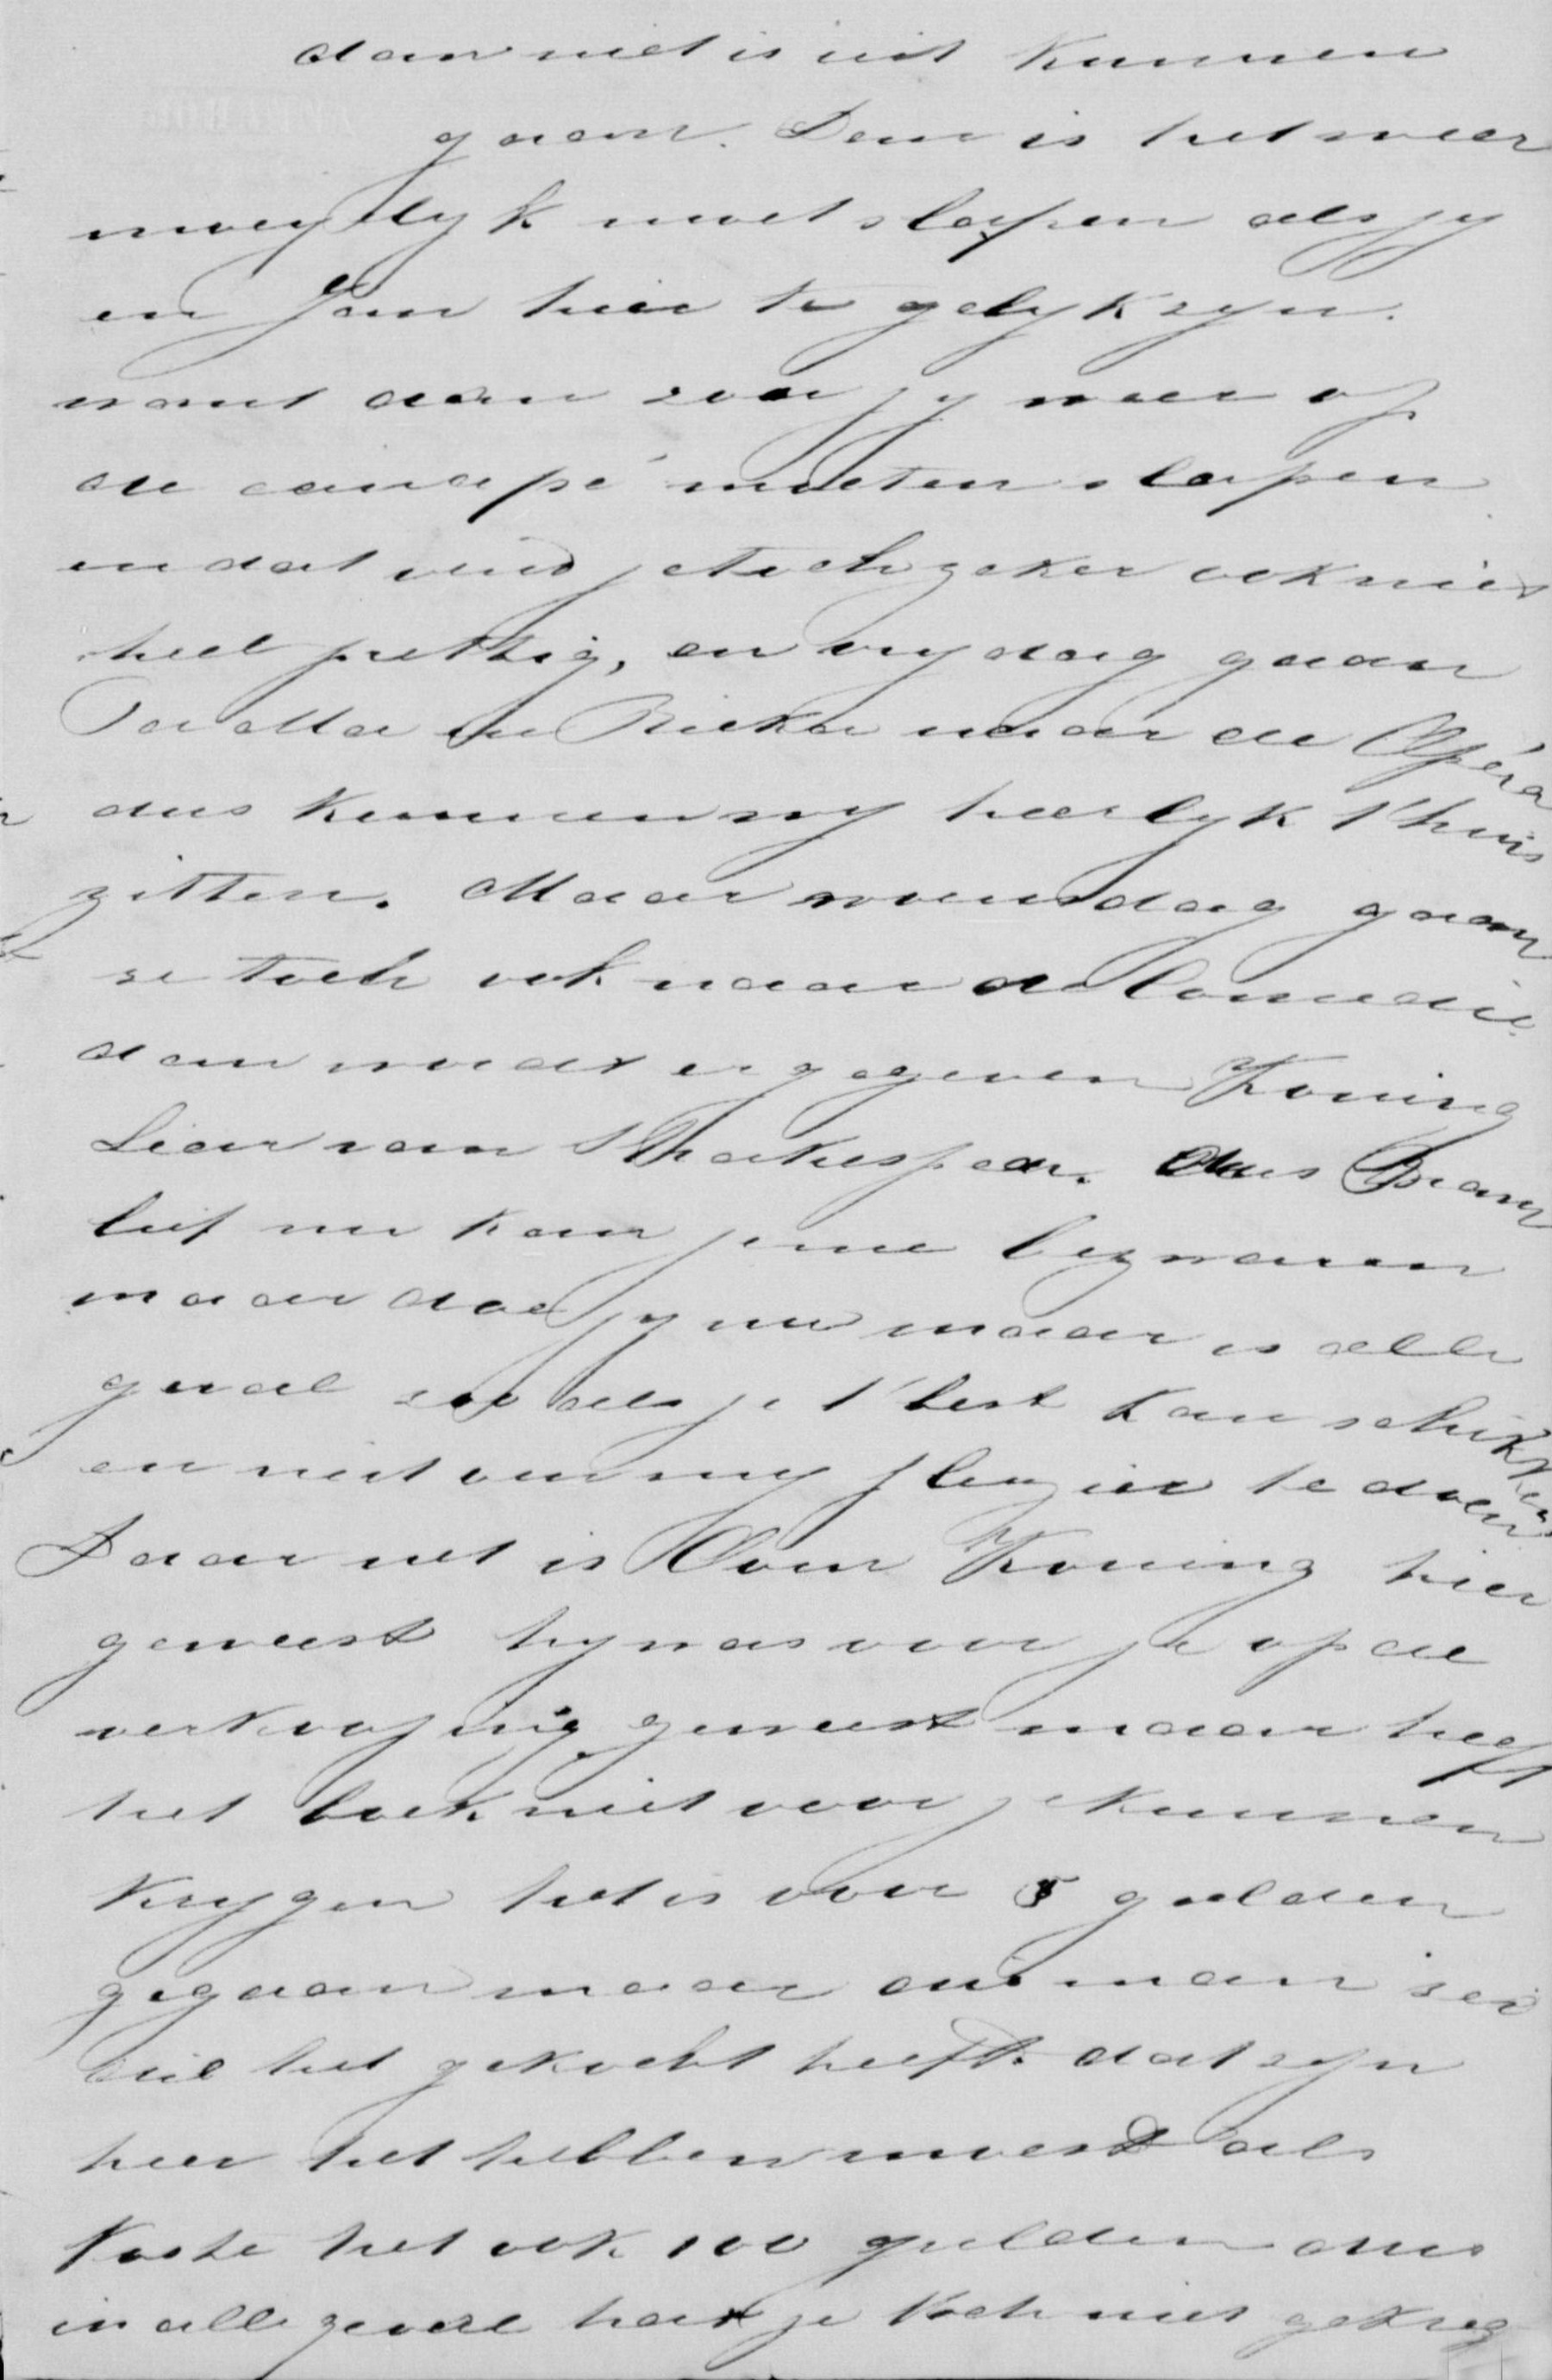 dan niet is uit kunnen
gaan. Dan is het weer
moeylyk met slapen als jy
en Jan hier te gelyk zyn.
want dan zou jy weer op
de canapé moeten slapen
en dat vind je toch zeker ook niet
heel prettig, en vrydag gaan
Pa Ma en Rieka naar de Opéra
dus kunnen wy heerlyk t'huis
zitten. Maar woensdag gaan
ze toch ook naar de Comedie
dan wordt er gegeven Koning
Lear van Shakespear. dus Bram
lief nu kan je me
maar doe jy nu maar in alle
geval zoo als je 't best kan schikken
en niet om my plezier te doen
Daar net is Oom Koning hier
geweest hy was voor je op de
verkooping geweest maar heeft
het boek niet voor je kunnen
krygen het is voor 5 gulden
gegaan maar die man zei
die het gekocht heeft dat zyn
heer het hebben moest als
koste het ook 100 gulden dus
in alle geval had je toch niet gekreg